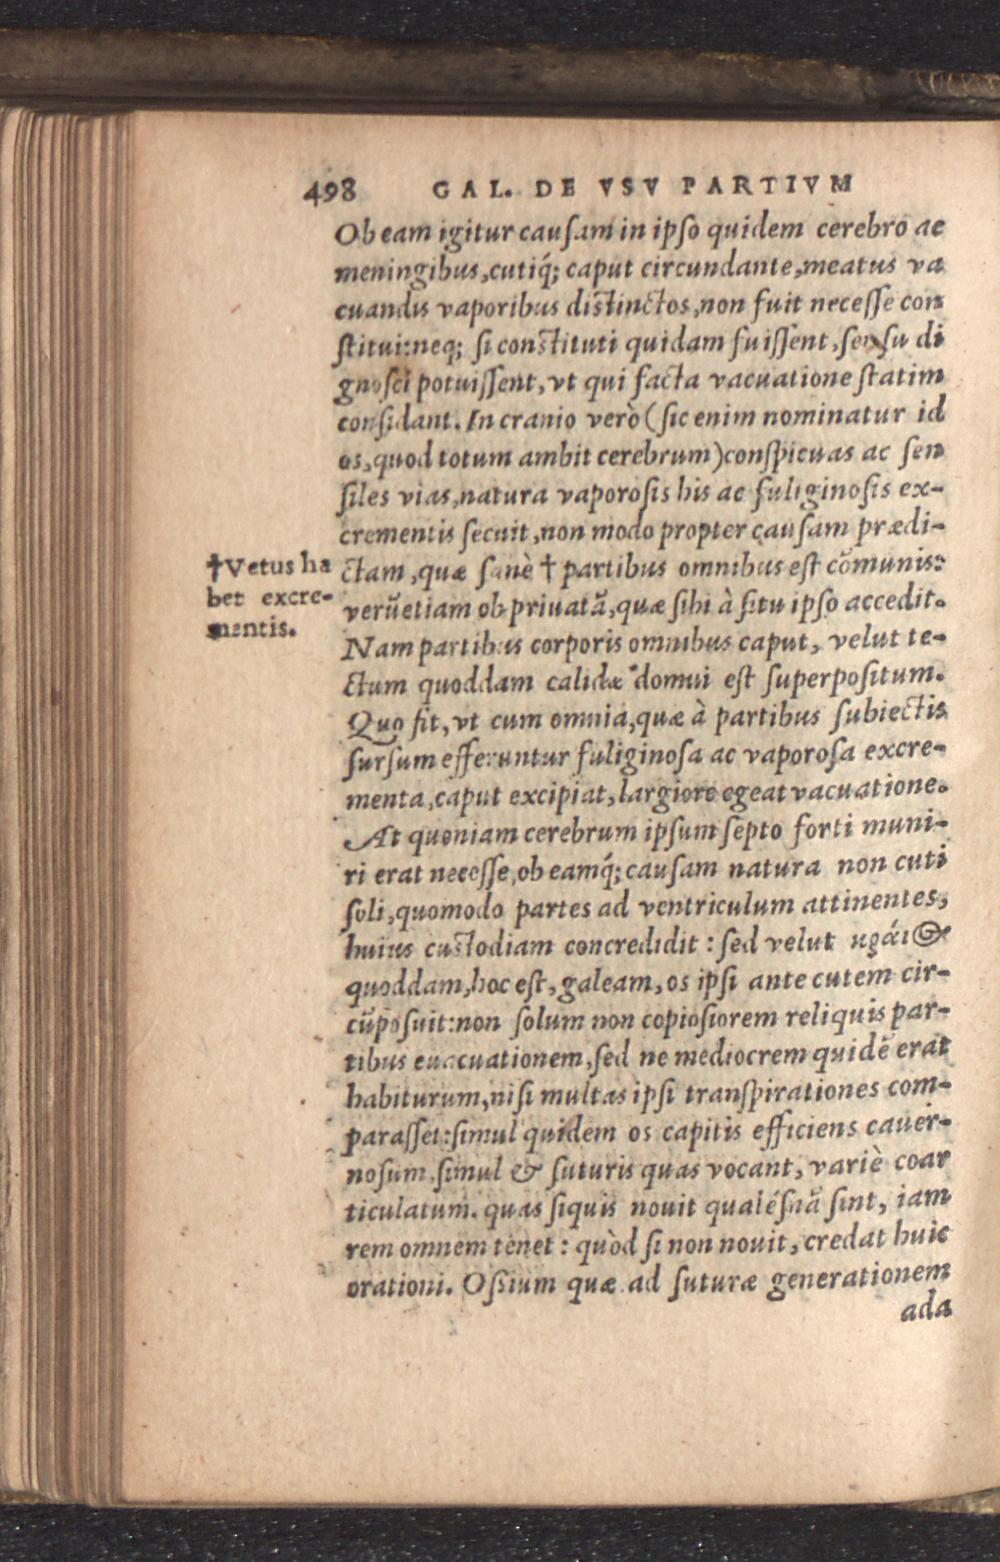 498 GAL. DE VSV PARTIVM
Ob eam igitur cauſam in ipſo quidem cerebro ac
meningibus, cutiq́; caput circundante, meatus va
cuandis vaporibus diſtinctos, non fuit neceſſe con
ſtitui: neq; ſi conſtituti quidam fuiſſent, ſenſu di
gnoſci potuiſſent, vt qui facta vacuatione ſtatim
conſidant. In cranio verò (ſic enim nominatur id
os, quod totum ambit cerebrum) conſpicuas ac ſen
ſiles vias, natura vaporoſis his ac fuliginoſis ex-
crementis ſecuit, non modo propter cauſam prædi-
ctam, quæ ſanè † partibus omnibus eſt cõmunis:
verũetiam ob priuatã, quæ ſibi à ſitu ipſo accedit.
Nam partibus corporis omnibus caput, velut te-
ctum quoddam calidæ domui eſt ſuperpoſitum.
Quo fit, vt cum omnia, quæ à partibus ſubiectis
ſurſum efferuntur fuliginoſa ac vaporoſa excre-
menta, caput excipiat, largiore egeat vacuatione.
At quoniam cerebrum ipſum ſepto forti muni-
ri erat neceſſe, ob eamq́; cauſam natura non cuti
ſoli, quomodo partes ad ventriculum attinentes,
huius cuſtodiam concredidit: ſed velut κράνος
quoddam, hoc eſt, galeam, os ipſi ante cutem cir-
cũpoſuit: non ſolum non copioſiorem reliquis par-
tibus euacuationem, ſed ne mediocrem quidẽ erat
habiturum, niſi multas ipſi tranſpirationes com-
paraſſet: ſimul quidem os capitis efficiens cauer-
noſum, ſimul & ſuturis quas vocant, variè coar
ticulatum. quas ſiquis nouit qualéſnã ſint, iam
rem omnem tenet: quòd ſi non nouit, credat huic
orationi. Oſsium quæ ad ſuturæ generationem
ada
†Vetus ha
bet excre-
mentis.